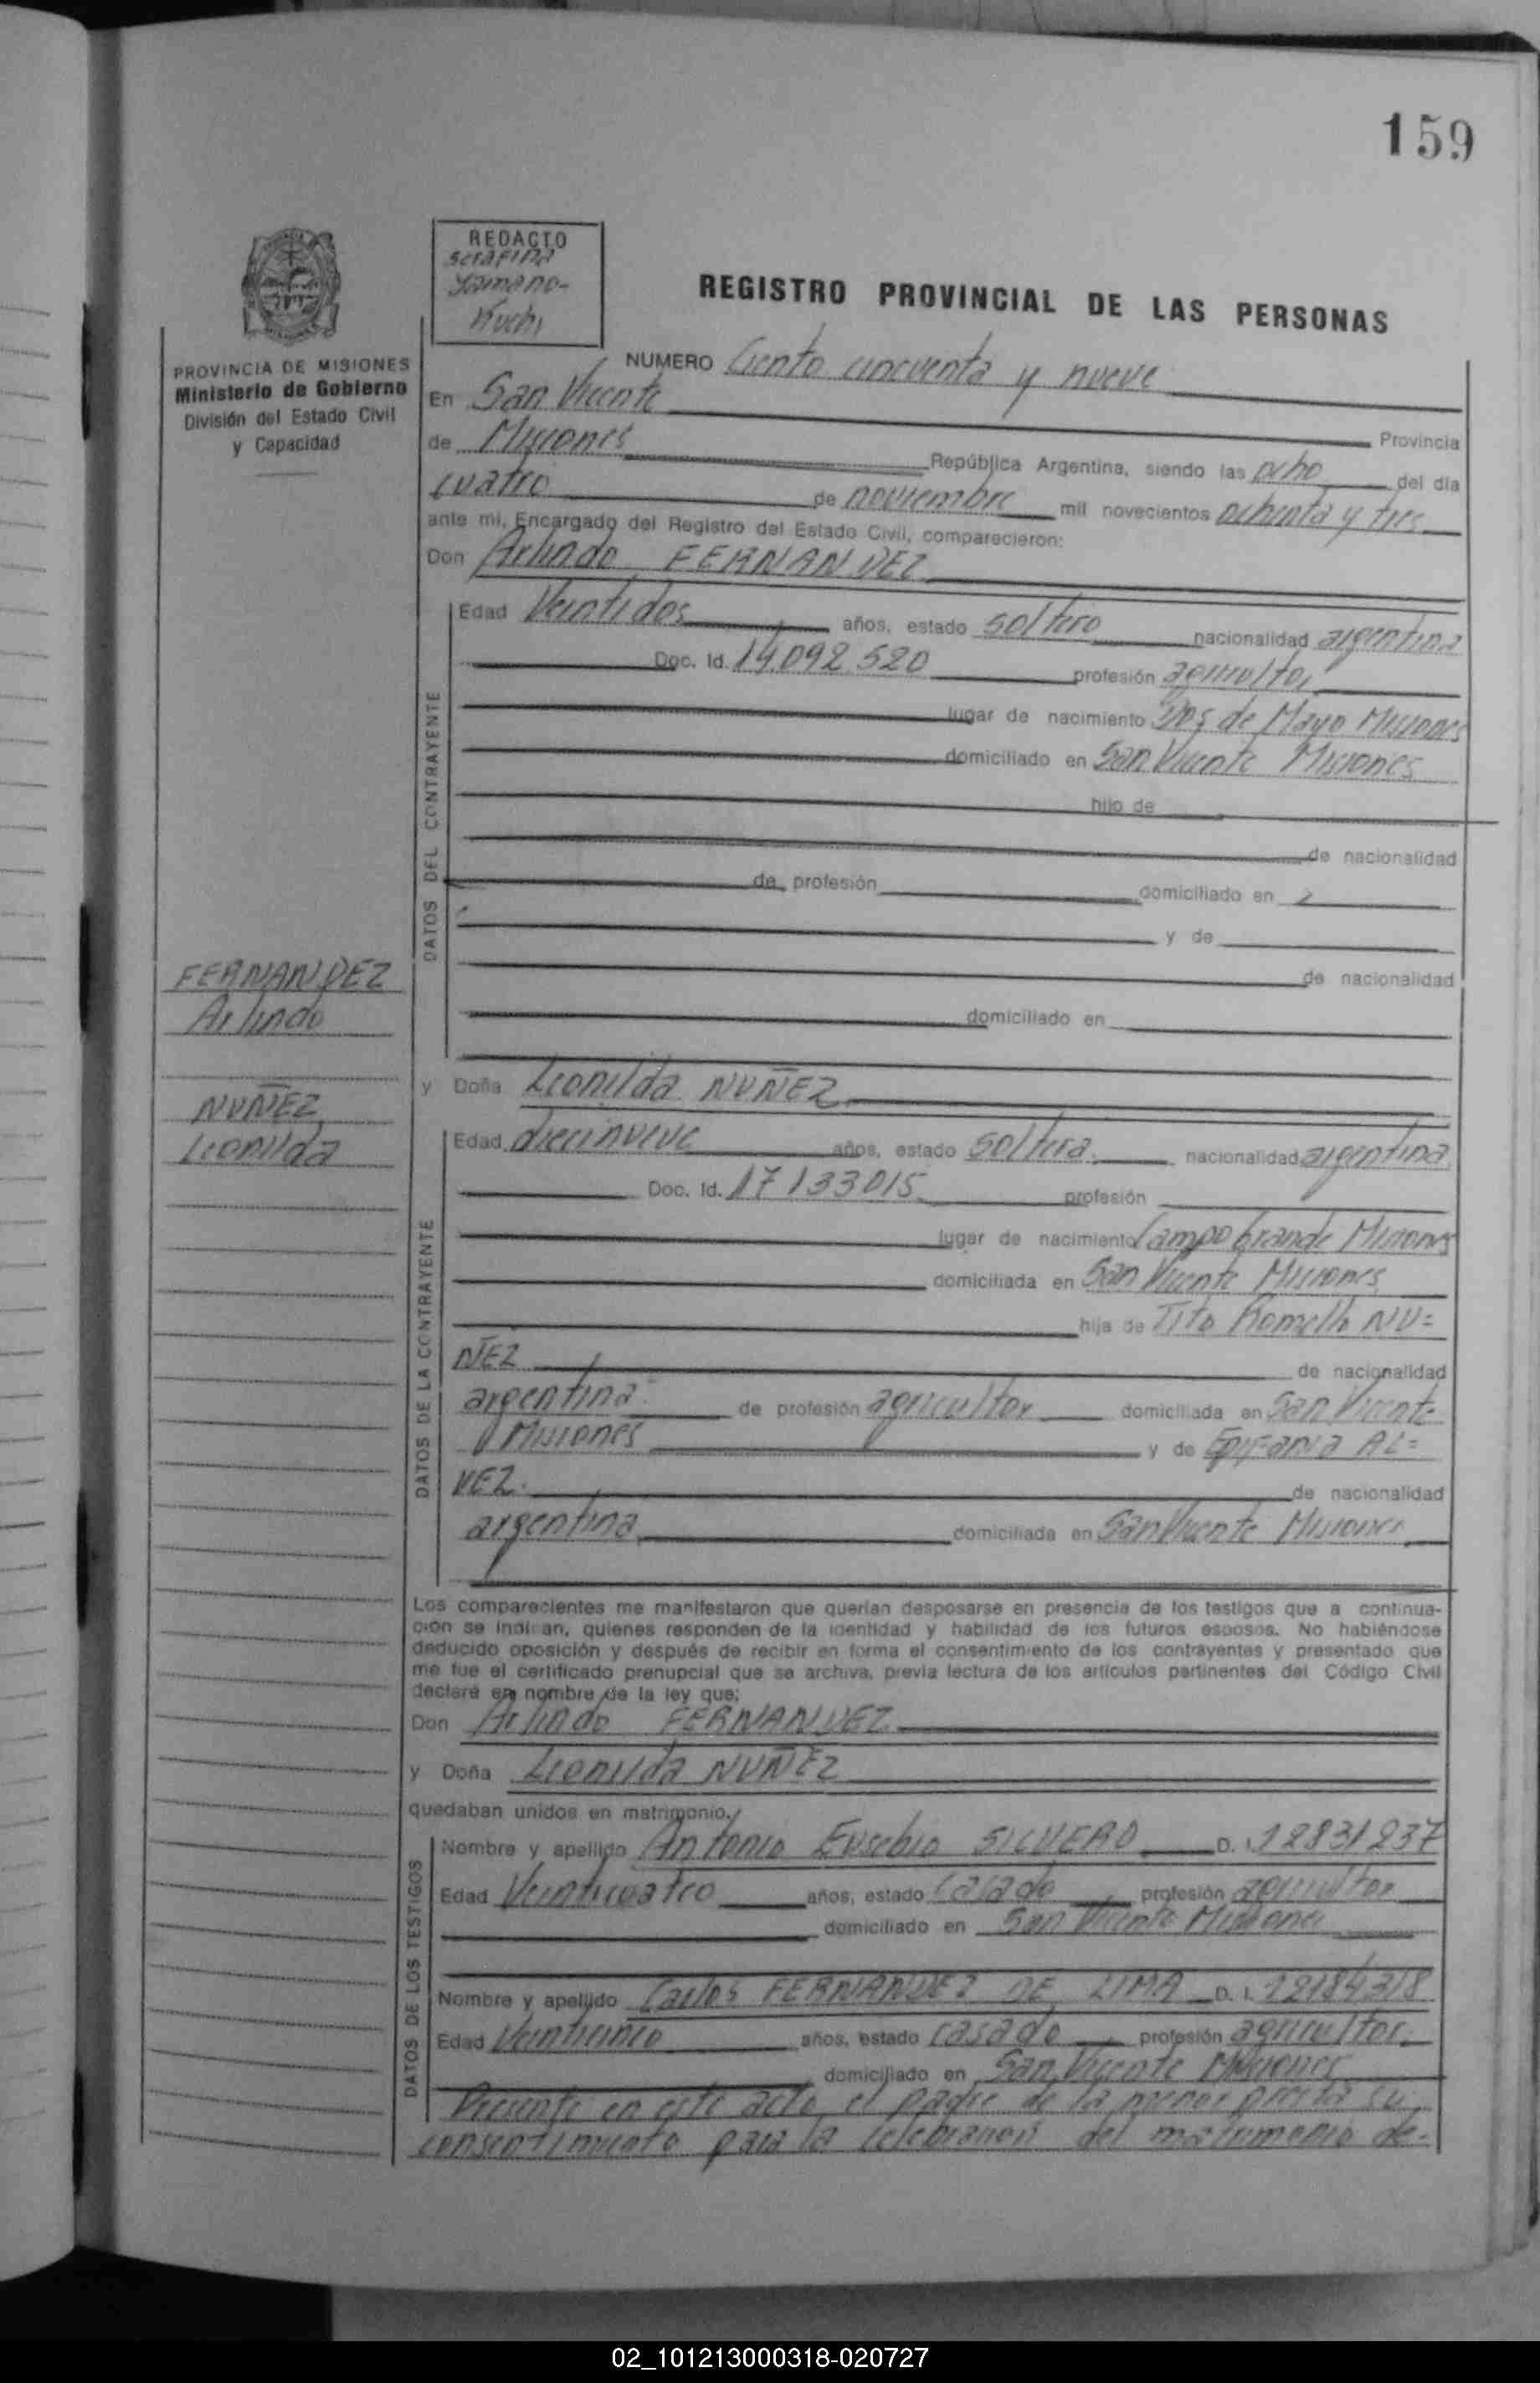 159
REDACTO
Serafina
Yamano-
Kuchi
REGISTRO PROVINCIAL DE LAS PERSONAS
PROVINCIA DE MISIONES
Ministerio de Gobierno
División del Estado Civil
y Capacidad
NUMERO Ciento cincuenta y nueve
En San Vicente Provincia
de Misiones República Argentina, siendo las ocho del día
cuatro de noviembre mil novecientos ochenta y tres
ante mi, Encargado del Registro del Estado Civil, comparecieron:
Don Arlindo FERNANDEZ
DATOS DEL CONTRAYENTE
Edad Veintidos años, estado soltero nacionalidad argentina
Doc. Id. 14.092.520 profesión agricultor
lugar de nacimiento Dos de Mayo Misiones
domiciliado en San Vicente Misiones
hijo de
de nacionalidad
de profesión domiciliado en
y de
de nacionalidad
domiciliado en
FERNANDEZ
Arlindo
NUÑEZ
Leonilda
y Doña Leonilda NUÑEZ
DATOS DE LA CONTRAYENTE
Edad diecinueve años, estado soltera nacionalidad argentina
Doc. Id. 17133015 profesión
lugar de nacimiento Campo Grande Misiones
domiciliada en San Vicente Misiones
hija de Tito Romello NU=
ÑEZ de nacionalidad
argentina de profesión agricultor domiciliada en San Vicente
Misiones y de Epifania AL=
VEZ. de nacionalidad
argentina domiciliada en San Vicente Misiones
Los comparecientes me manifestaron que querían desposarse en presencia de los testigos que a continua-
ción se indican, quienes responden de la identidad y habilidad de los futuros esposos. No habiéndose
deducido oposición y después de recibir en forma el consentimiento de los contrayentes y presentado que
me fue el certificado prenupcial que se archiva, previa lectura de los artículos pertinentes del Código Civil
declaré en nombre de la ley que:
Don Arlindo FERNANDEZ
y Doña Leonilda NUÑEZ
quedaban unidos en matrimonio.
DATOS DE LOS TESTIGOS
Nombre y apellido Antonio Eusebio SILVERO D. I. 12831237
Edad Veinticuatro años, estado casado profesión agricultor
domiciliado en San Vicente Misiones
Nombre y apellido Carlos FERNANDEZ DE LIMA D. I. 12184318
Edad Veinticinco años, estado casado profesión agricultor
domiciliado en San Vicente Misiones
Presente en este acto el padre de la menor presta su
consentimiento para la celebración del matrimonio de-
02_101213000318-020727